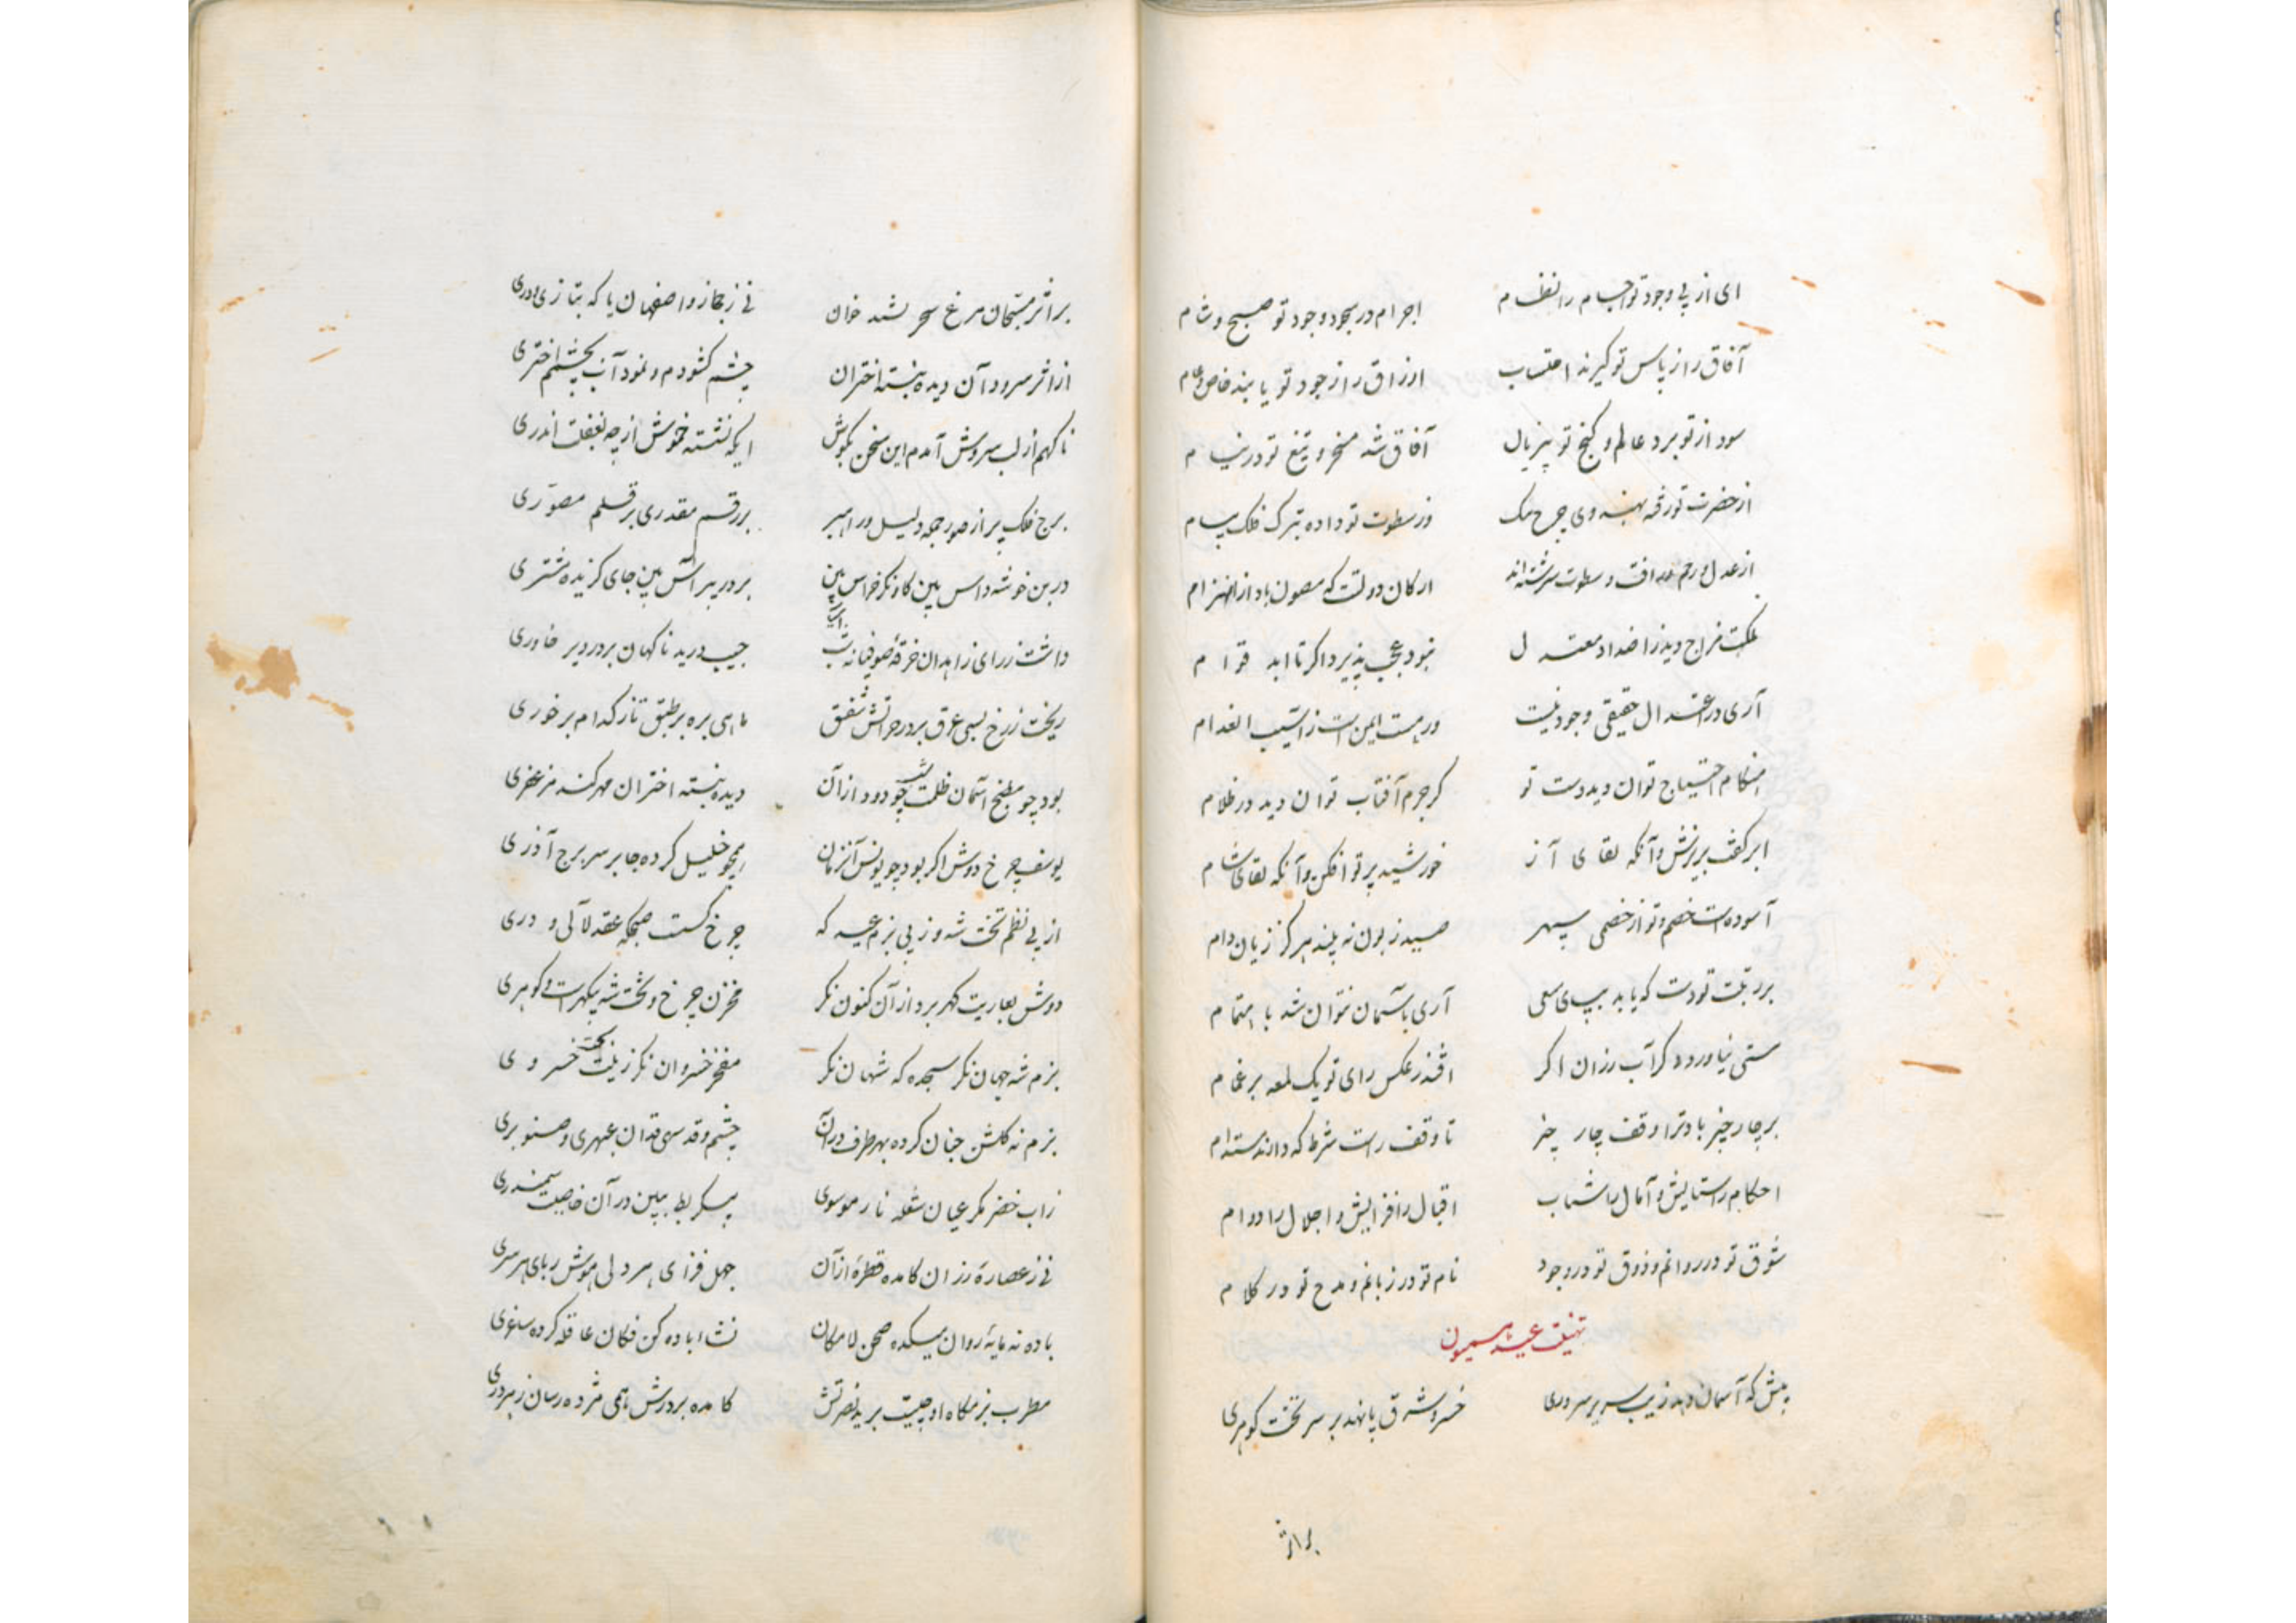 ای از پی وجود تو اجسام را نظام اجرام در سجود وجود تو صبح و شام
آفاق را ز پاس تو گیرند احتساب ارزاق را ز جود تو یابند خاص و عام
سود از تو برد عالم و گنج تو پر زیال آفاق شد مسخر و تیغ تو در نیام
از حضرت تو رفته بهندوی چرخ مک وز سطوت تو داده بترک فلک پیام
از عدل و رحم و رافت و سطوت سرشته‌اند ارکان دولت که مصون باد از انهزام
ملکت مزاج دید ز اضداد معتدل نبود عجب پذیرد اگر تا ابد قوام
آری در اعتدال حقیقی وجود نیست ور هست ایمن است ز آسیب انعدام
هنگام احتیاج توان دید دست تو گر جرم آفتاب توان دید در ظلام
ابر کف بریزش و آنگه بقای آز خورشید پرتو افکن و آنگه بقای شام
آسوده است خصم تو از خصمی سپهر صید زبون نه بیند هرگز زیان دام
بر رتبت تو دست که یابد بپای سعی آری بآسمان نتوان شد باهتمام
مستی نیاورد دگر آب رزان اگر افتد ز عکس رای تو یک لمعه بر غمام
بر چار چیز باد ترا وقف چار چیز تا وقف راست شرط که دارند مستدام
احکام را ستایش و آمال را شباب اقبال را فزایش و اجلال را دوام
شوق تو در روانم و ذوق تو در وجود نام تو در زبانم و مدح تو در کلام
تهنیت عید همیون
پیش که آسمان دهد زیب سریر سروری خسرو شرق پا نهد بر سر تخت گوهری
بر اثر
بر اثر مسبحان مرغ سحر نشید خوان نی ز حجاز و اصفهان یا که بتازی و دری
از اثر سرود آن دیده ببسته اختران چشم گشودم و نمود آن بچشم اختری
ناگهم از لب سروش آمدم این سخن بگوش ایکه نشسته خموش از چه بغفلت اندری
برج فلک پر از صور جمله دلیل و راهبر بر رقم مقدری بر قلم مصوری
در بن خوشه داس بین گاو نگر خراس بین بر در پیر آس بین جای گزیده مشتری
داشت ز رای زاهدان خرقه صوفیانه شب جیب درید ناگهان بر در دیر خاوری
ریخت ز رخ بسی عرق بر در حر آتش شفق ماهی بره بر طبق تاز کدام بر خوری
بود چو مطبخ آسمان ظلمت شب چو دود از آن دیده ببسته اختران مهر کند مزعفری
یوسف چرخ دوش اگر بود چو یونس آنزمان همچو خلیل کرده جا بر سر برج آذری
از پی نظم تخت شه وز پی بزم عید که چرخ گسست صبحگه عقد لآلی و دری
دوش بعاریت گهر برد از آن کنون نگر مخزن چرخ و تخت شه یکهراست و گوهری
بزم شه جهان نگر سجده که شهان نگر مفخر خسروان نگر زینت تخت خسروی
بزم نه گلشن جنان کرده بهر طرف در آن چشم و قد سهی قدان عبهری و صنوبری
ز آب خضر نگر عیان شعله نار موسوی پیکر بط ببین در آن خاصیت سمندری
نی ز عصاره رزان کامده قطره از آن جهل فزای هر دلی هوش ربای هر سری
باده نه مایه روان میکده صحن لامکان نشاء باده کن فکان عاقله کرده ساغری
مطرب بزمگاه او چیست برید نصرتش کامده بر درش همی مژده رسان ز هر دری